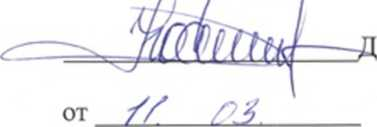 Д
от 11. 03.